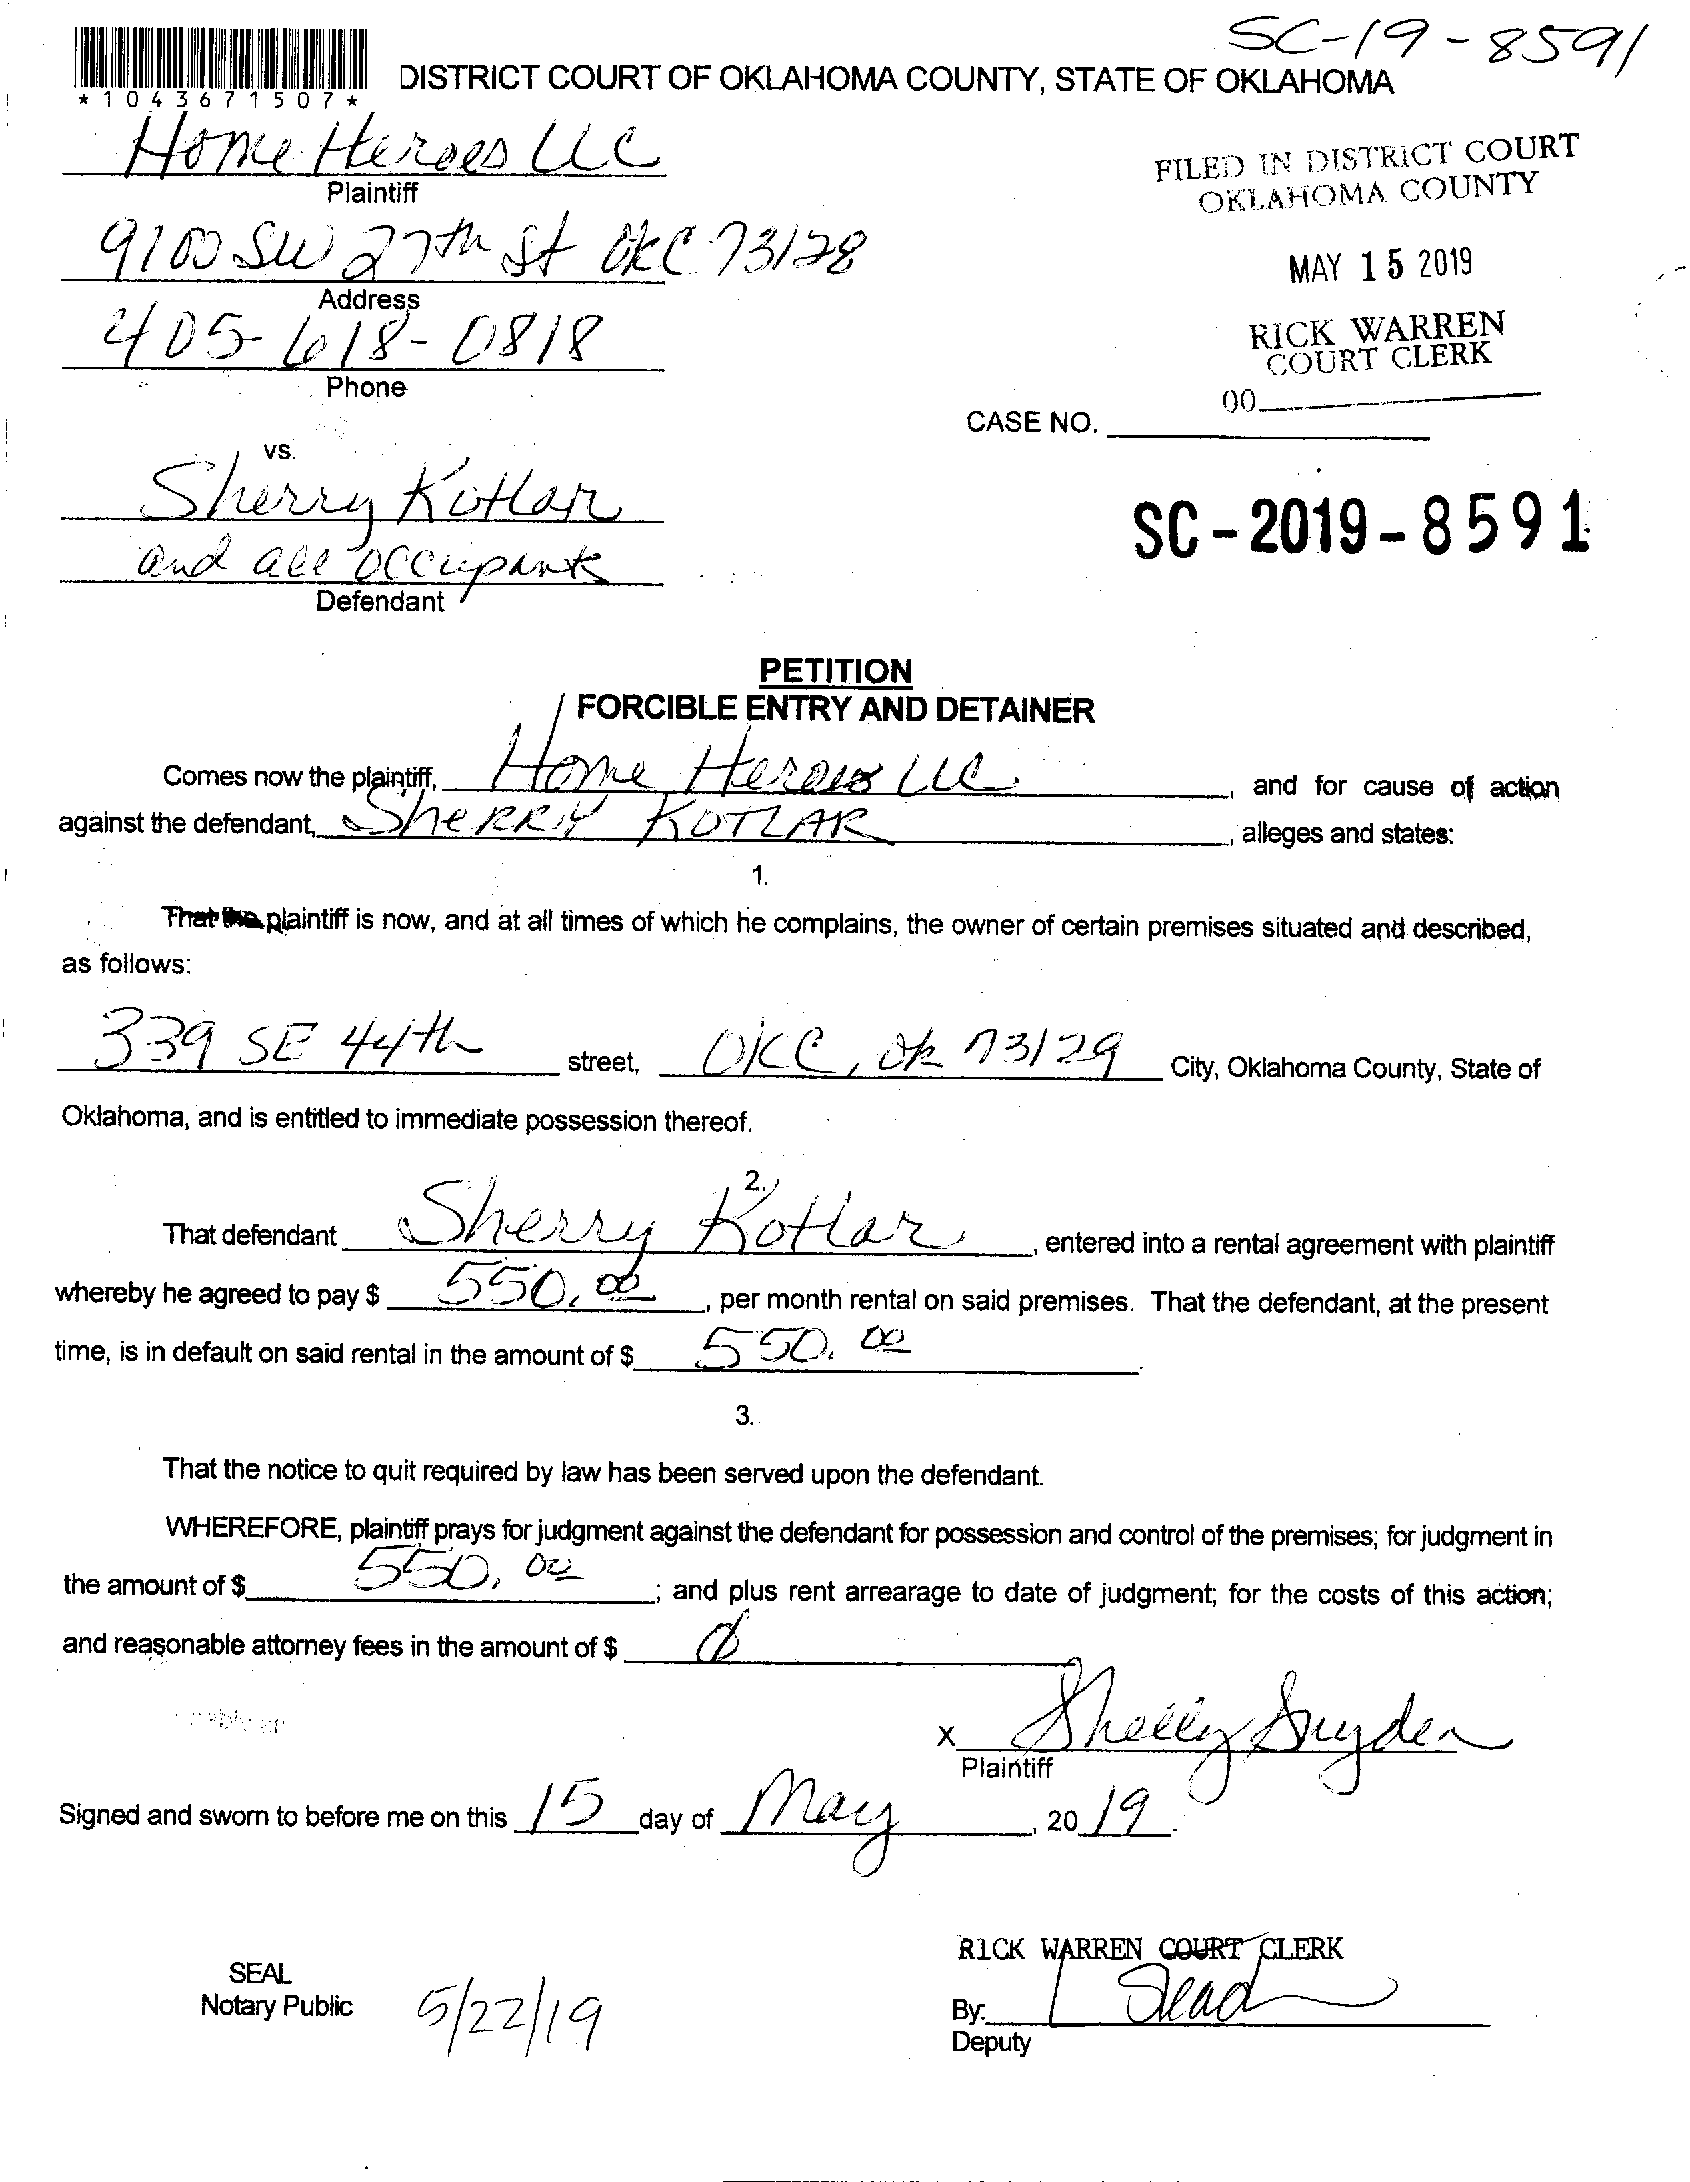 SC-19-8591
*1043671507*
DISTRICT COURT OF OKLAHOMA COUNTY, STATE OF OKLAHOMA
Home Heroes LLC
Plaintiff
FILED IN DISTRICT COURT
OKLAHOMA COUNTY
9100 SW 27th St OKC 73128
Address
MAY 15 2019
405-618-0818
Phone
RICK WARREN
COURT CLERK
00
CASE NO.
vs.
Sherry Kotlar
and all occupants
Defendant
SC-2019-8591
PETITION
FORCIBLE ENTRY AND DETAINER
Comes now the plaintiff, Home Heroes LLC and for cause of action
against the defendant, SheRRY KOTLAR, alleges and states:
1.
That the plaintiff is now, and at all times of which he complains, the owner of certain premises situated and described,
as follows:
339 SE 44th street, OKC, ok 73129 City, Oklahoma County, State of
Oklahoma, and is entitled to immediate possession thereof.
2.
That defendant Sherry Kotlar, entered into a rental agreement with plaintiff
whereby he agreed to pay $ 550.00, per month rental on said premises. That the defendant, at the present
time, is in default on said rental in the amount of $ 550.00.
3.
That the notice to quit required by law has been served upon the defendant.
WHEREFORE, plaintiff prays for judgment against the defendant for possession and control of the premises; for judgment in
the amount of $ 550.00; and plus rent arrearage to date of judgment; for the costs of this action;
and reasonable attorney fees in the amount of $ Ø
x Shelly Snyder
Plaintiff
Signed and sworn to before me on this 15 day of May, 2019.
RICK WARREN COURT CLERK
SEAL
Notary Public 5/22/19
By:
Deputy